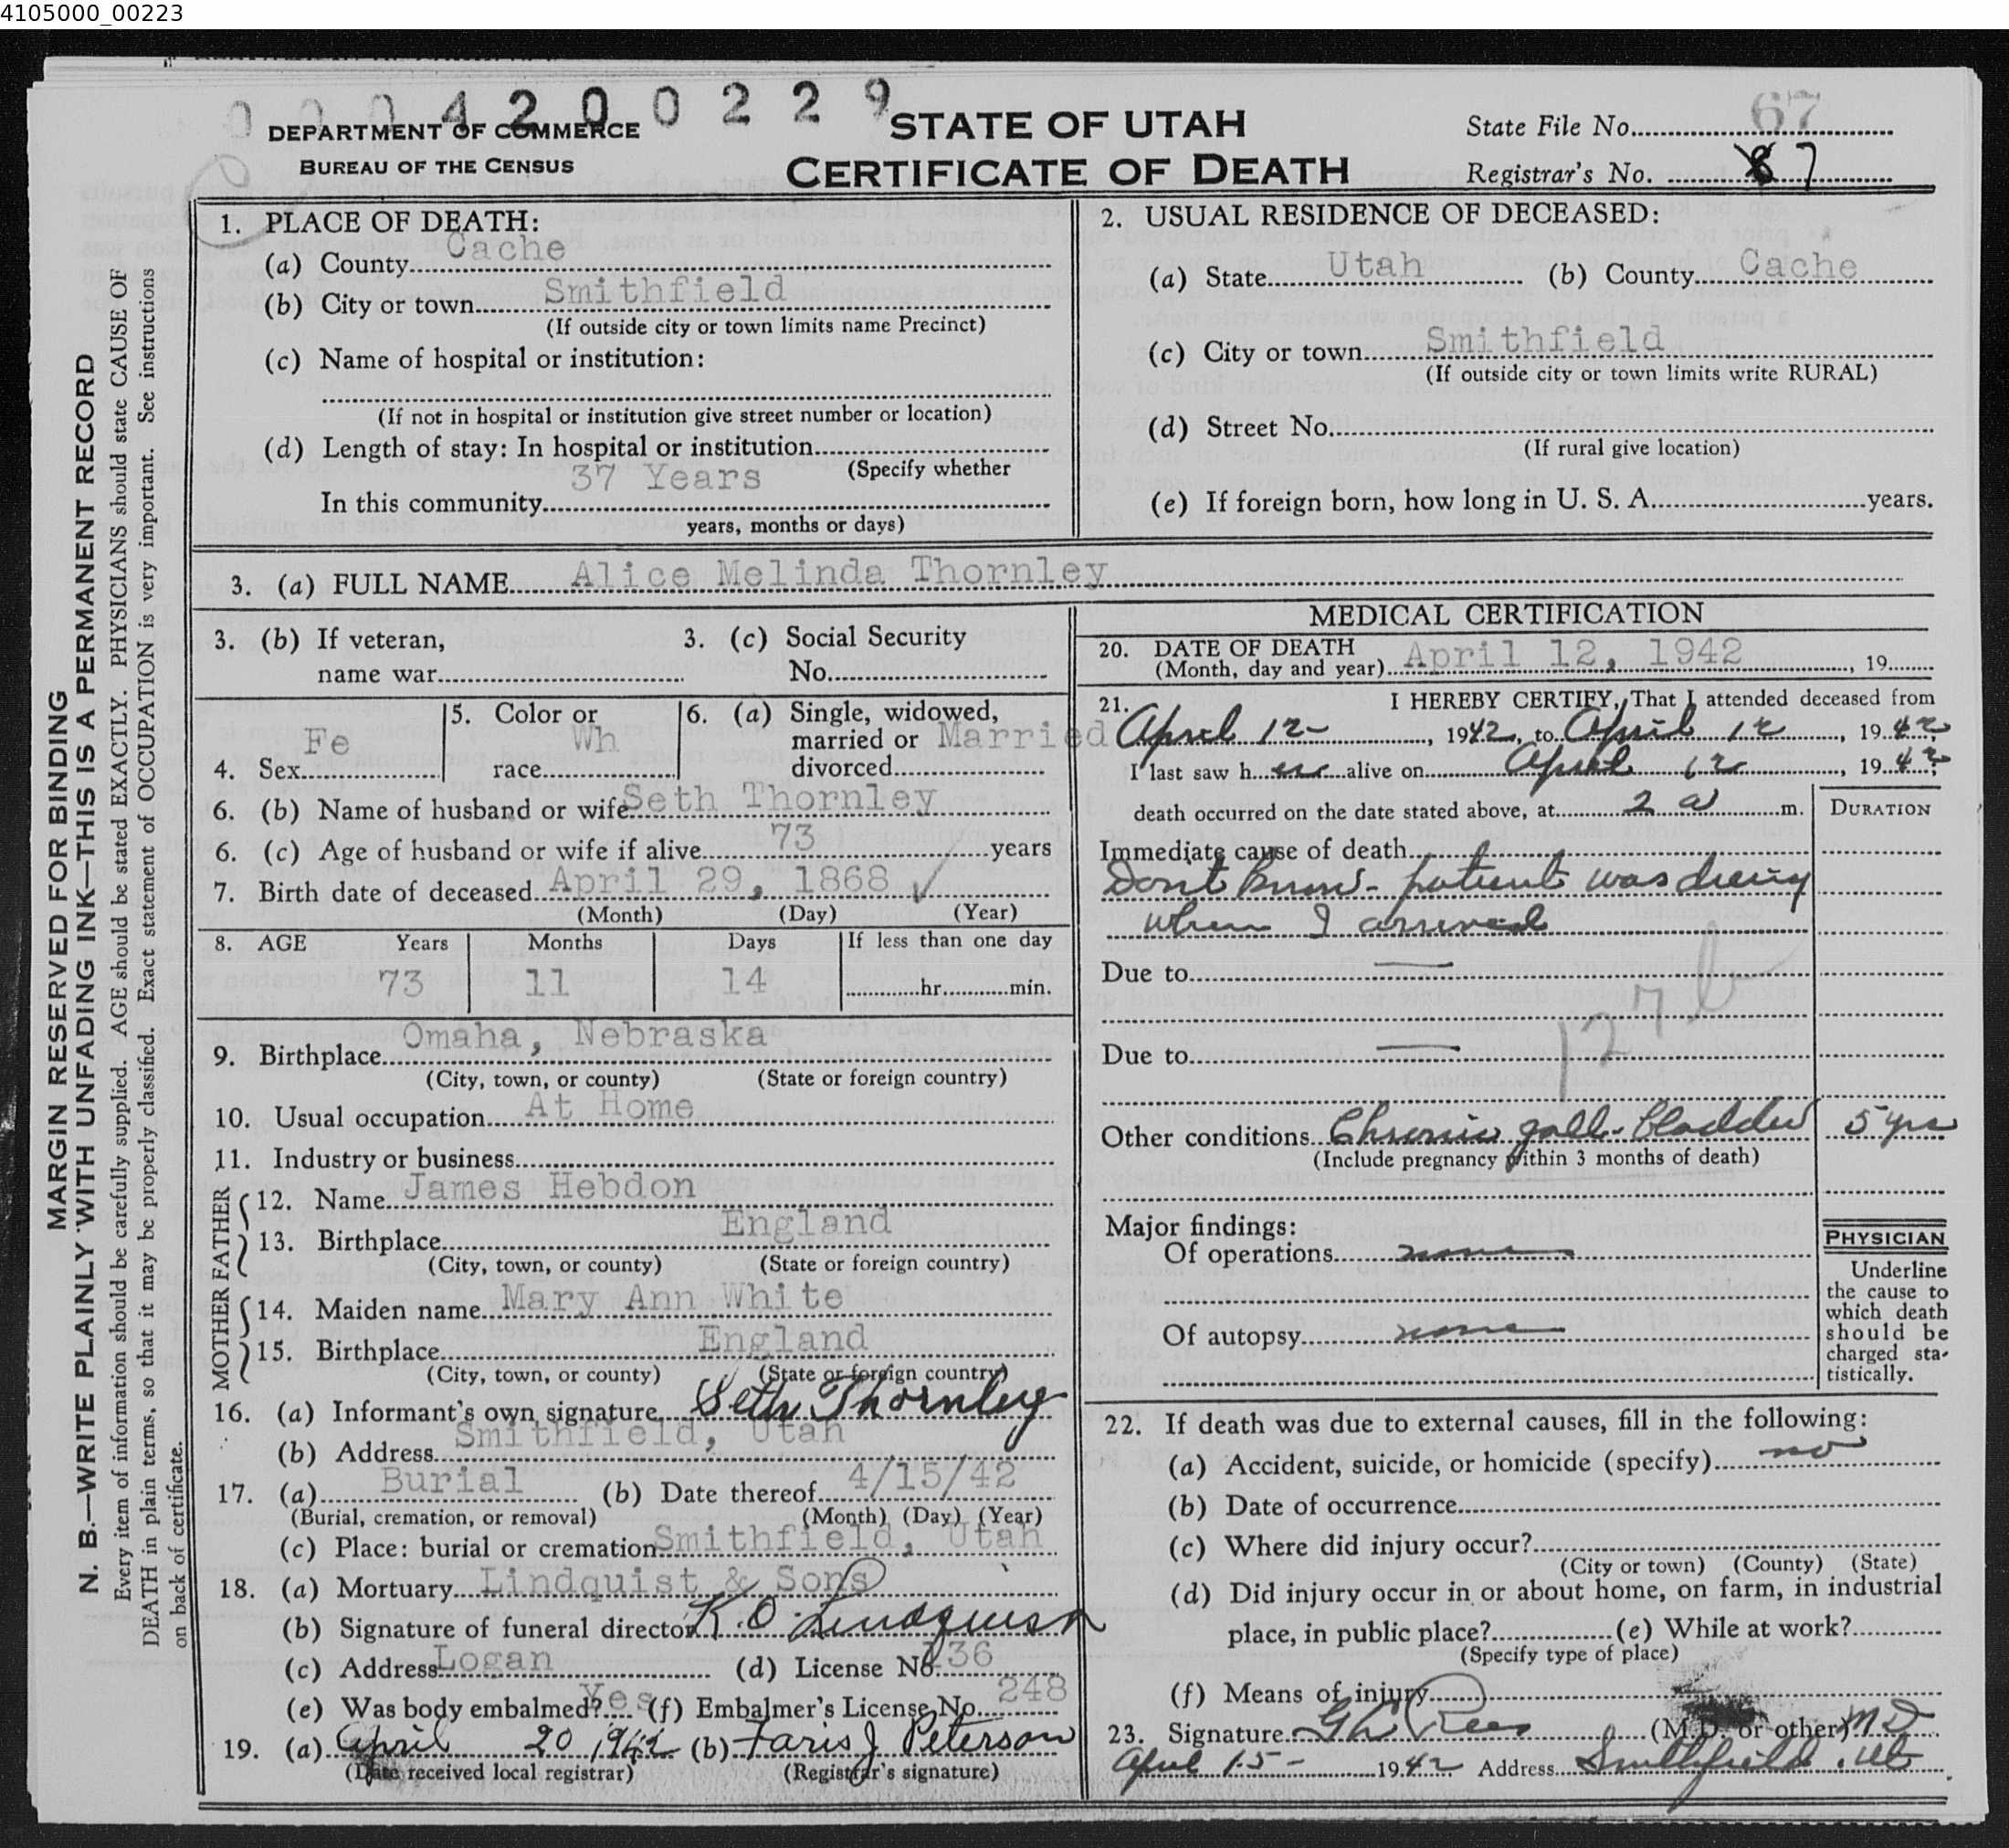 4105000_00223
0004200229
DEPARTMENT OF COMMERCE
BUREAU OF THE CENSUS
STATE OF UTAH
CERTIFICATE OF DEATH
State File No. 67
Registrar's No. 87
MARGIN RESERVED FOR BINDING
N. B.—WRITE PLAINLY WITH UNFADING INK—THIS IS A PERMANENT RECORD
Every item of information should be carefully supplied. AGE should be stated EXACTLY. PHYSICIANS should state CAUSE OF
DEATH in plain terms, so that it may be properly classified. Exact statement of OCCUPATION is very important. See instructions
on back of certificate.
1. PLACE OF DEATH:
(a) County Cache
(b) City or town Smithfield
(If outside city or town limits name Precinct)
(c) Name of hospital or institution:
(If not in hospital or institution give street number or location)
(d) Length of stay: In hospital or institution
(Specify whether
In this community 37 Years
years, months or days)
2. USUAL RESIDENCE OF DECEASED:
(a) State Utah (b) County Cache
(c) City or town Smithfield
(If outside city or town limits write RURAL)
(d) Street No.
(If rural give location)
(e) If foreign born, how long in U. S. A. years.
3. (a) FULL NAME Alice Melinda Thornley
3. (b) If veteran,
name war
3. (c) Social Security
No.
4. Sex Fe
5. Color or
race Wh
6. (a) Single, widowed,
married or
divorced Married
6. (b) Name of husband or wife Seth Thornley
6. (c) Age of husband or wife if alive 73 years
7. Birth date of deceased April 29, 1868 ✓
(Month) (Day) (Year)
8. AGE Years Months Days If less than one day
73 11 14 hr. min.
9. Birthplace Omaha, Nebraska
(City, town, or county) (State or foreign country)
10. Usual occupation At Home
11. Industry or business
FATHER
12. Name James Hebdon
13. Birthplace England
(City, town, or county) (State or foreign country)
MOTHER
14. Maiden name Mary Ann White
15. Birthplace England
(City, town, or county) (State or foreign country)
16. (a) Informant's own signature Seth Thornley
(b) Address Smithfield, Utah
17. (a) Burial (b) Date thereof 4/15/42
(Burial, cremation, or removal) (Month) (Day) (Year)
(c) Place: burial or cremation Smithfield, Utah
18. (a) Mortuary Lindquist & Sons
(b) Signature of funeral director K O Lindquist
(c) Address Logan (d) License No. 336
(e) Was body embalmed? Yes (f) Embalmer's License No. 248
19. (a) April 20 1942 (b) Faris J Peterson
(Date received local registrar) (Registrar's signature)
MEDICAL CERTIFICATION
20. DATE OF DEATH
(Month, day and year) April 12, 1942, 19
21. I HEREBY CERTIFY, That I attended deceased from
April 12, 1942, to April 12, 1942
I last saw her alive on April 12, 1942
death occurred on the date stated above, at 2 a m.
DURATION
Immediate cause of death
Dont Know - patient was dieing
when I arrived
Due to —
127b
Due to —
Other conditions Chronic gall-bladder 5 yrs
(Include pregnancy within 3 months of death)
Major findings:
Of operations none
Of autopsy none
PHYSICIAN
Underline
the cause to
which death
should be
charged sta-
tistically.
22. If death was due to external causes, fill in the following:
(a) Accident, suicide, or homicide (specify) no
(b) Date of occurrence
(c) Where did injury occur?
(City or town) (County) (State)
(d) Did injury occur in or about home, on farm, in industrial
place, in public place? (e) While at work?
(Specify type of place)
(f) Means of injury
23. Signature G L Rees (M.D. or other) MD
April 15 - 1942 Address Smithfield, Ut